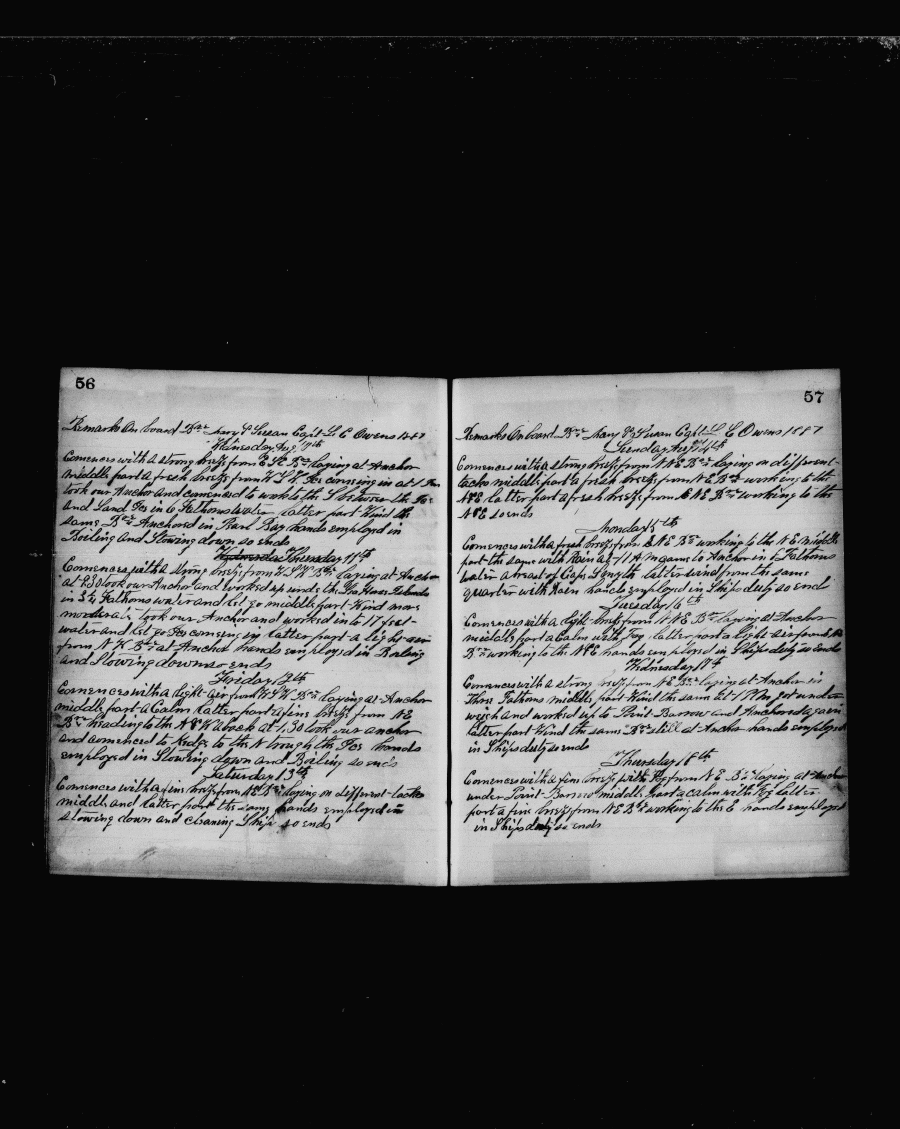 56
Remarks On board Bne Mary & Susan Capt L C Owens 1887
Wednesday Aug 10th
Comences with a strong breeze from E S E Bne laying at Anchor
middle part a fresh breeze from Ice comeing in at
took our Anchor and comenced to work to the S between the Ice
and Land Ice in 6 Fathoms water latter part Wind the
same Bne Anchord in Bay hands employed in
Boiling and Stowing down so ends
Thursday 11th
Comences with a strong breeze from W S W Bne laying at Anchor
at 830 took our Anchor and worked up under the Sea Horse Islands
in Fathoms water and let go middle part Wind more
moderate took our Anchor and worked in to 17 feet
water and let go Ice comeing in latter part a light air
from N W Bne at Anchor hands employed in Boiling
and Stowing down so ends
Friday 12th
Comences with a light air from W S W Bne laying at Anchor
middle part a Calm latter part a fine breeze from N E
Bne heading to the aback at 1.30 took our anchor
and comenced to Kedge to the N through the Ice hands
employed in Stowing down and Boiling so ends
Saturday 13th
Comences with a fine breeze from N E Bne laying on different tacks
middle and latter part the same hands employed in
stowing down and cleaning Ship so ends
57
Remarks On board Bne Mary & Susan Capt L C Owens 1887
Sunday Aug 14th
Comences with a strong breeze from N N E Bne laying on different
tacks middle part a fresh breeze from N E Bne working to the
N & E latter part a fresh breeze from E N E Bne working to the
N & E so ends
Monday 15th
Comences with a fresh breeze from E N E Bne working to the N E middle
part the same with Rain at 11 A m came to Anchor in 6 Fathoms
water abreast of Cape Smyth latter wind from the same
quarter with Rain hands employed in Ships duty so ends
Tuesday 16th
Comences with a light breeze from N N E Bne laying at Anchor
middle part a Calm with Fog latter part a light air from
Bne working to the N & E hands employed in Ships duty so ends
Wednesday 17th
Comences with a strong breeze from N E Bne laying at Anchor in
Three Fathoms middle part Wind the same at 1 P m got under
weigh and worked up to Point Barrow and Anchord again
latter part Wind the same Bne still at Anchor hands employed
in Ships duty so ends
Thursday 18th
Comences with a fine breeze with Fog from N E Bne laying at Anchor
under Point Barrow middle part a calm with Fog latter
part a fine breeze from N E Bne working to the E hands employed
in Ships duty so ends